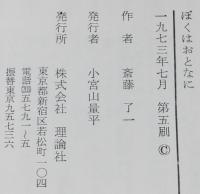 ぼくはおとなに
一九七三年七月　第五刷 ©
作者　斎藤了一
発行者　小宮山量平
発行所　株式会社　理論社
東京都新宿区若松町一〇四
電話 五七九一~五
振替東京九五七三六